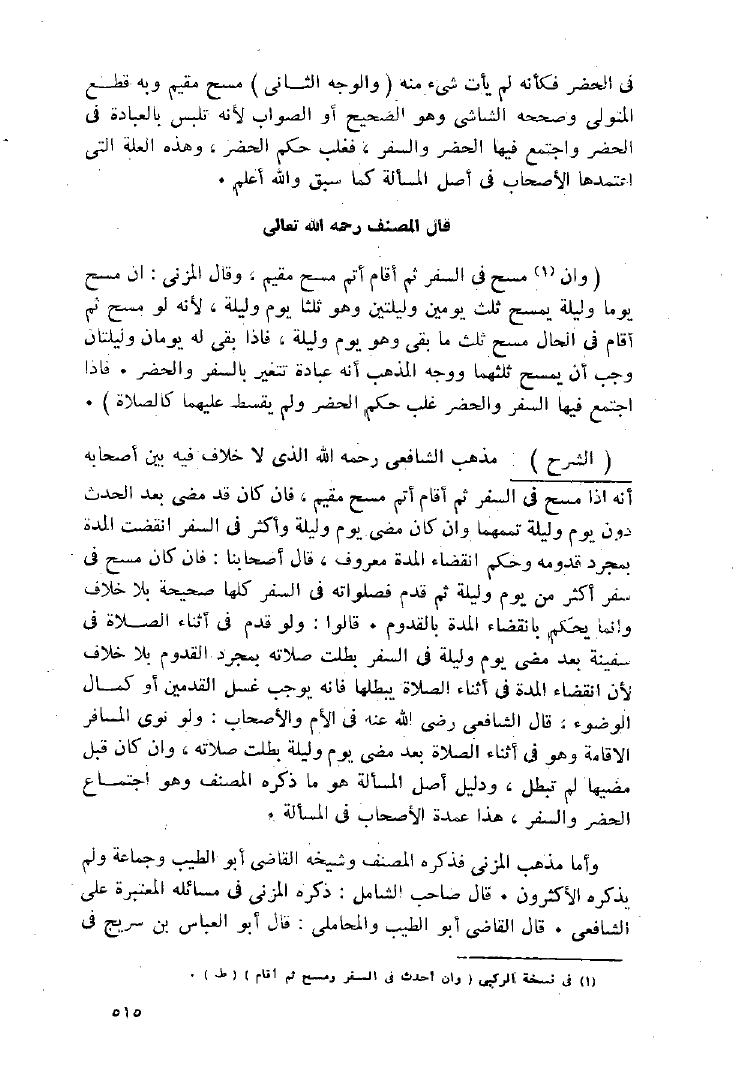 فى الحضر فكأنه لم يأت شىء منه ( والوجه الثـانى ) مسح مقيم وبه قطـــع
المتولى وصححه الشاشى وهو الصحيح أو الصواب لأنه تلبس بالعبادة فى
الحضر واجتمع فيها الحضر والسفر ، فغلب حكم الحضر ، وهذه العلة التى
اعتمدها الأصحاب فى أصل المسألة كما سبق والله أعلم ٠
قال المصنف رحمه الله تعالى
( وان (١) مسح فى السفر ثم أقام أتم مسح مقيم ، وقال المزنى : ان مسح
يوما وليلة يمسح ثلث يومين وليلتين وهو ثلثا يوم وليلة ، لأنه لو مسح ثم
أقام فى الحال مسح ثلث ما بقى وهو يوم وليلة ، فاذا بقى له يومان وليلتان
وجب أن يمسح ثلثهما ووجه المذهب أنه عبادة تتغير بالسفر والحضر ٠ فاذا
اجتمع فيها السفر والحضر غلب حكم الحضر ولم يقسط عليهما كالصلاة ) ٠
( الشرح ) مذهب الشافعى رحمه الله الذى لا خلاف فيه بين أصحابه
أنه اذا مسح فى السفر ثم أقام أتم مسح مقيم ، فان كان قد مضى بعد الحدث
دون يوم وليلة تممهما وان كان مضى يوم وليلة وأكثر فى السفر انقضت المدة
بمجرد قدومه وحكم انقضاء المدة معروف ، قال أصحابنا : فان كان مسح فى
سفر أكثر من يوم وليلة ثم قدم فصلواته فى السفر كلها صحيحة بلا خلاف
وانما يحكم بانقضاء المدة بالقدوم ٠ قالوا : ولو قدم فى أثناء الصــلاة فى
سفينة بعد مضى يوم وليلة فى السفر بطلت صلاته بمجرد القدوم بلا خلاف
لأن انقضاء المدة فى أثناء الصلاة يبطلها فانه يوجب غسل القدمين أو كمــال
الوضوء ، قال الشافعى رضى الله عنه فى الأم والأصحاب : ولو نوى المسافر
الاقامة وهو فى أثناء الصلاة بعد مضى يوم وليلة بطلت صلاته ، وان كان قبل
مضيها لم تبطل ، ودليل أصل المسألة هو ما ذكره المصنف وهو اجتمــاع
الحضر والسفر ، هذا عمدة الأصحاب فى المسألة ٠
وأما مذهب المزنى فذكره المصنف وشيخه القاضى أبو الطيب وجماعة ولم
يذكره الأكثرون ٠ قال صاحب الشامل : ذكره المزنى فى مسائله المعتبرة على
الشافعى ٠ قال القاضى أبو الطيب والمحاملى : قال أبو العباس بن سريج فى
(١) فى نسخة الركبى ( وان أحدث فى السفر ومسح ثم أقام ) ( ط ) ٠
٥١٥